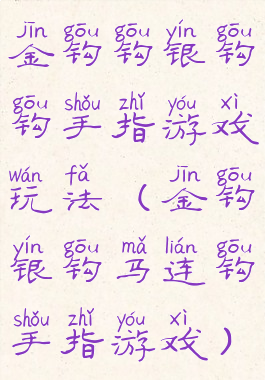 jīn gōu gōu yín gōu
金钩钩银钩
gōu shǒu zhǐ yóu xì
钩手指游戏
wán fǎ jīn gōu
玩法（金钩
yín gōu mǎ lián gōu
银钩马连钩
shǒu zhǐ yóu xì
手指游戏）